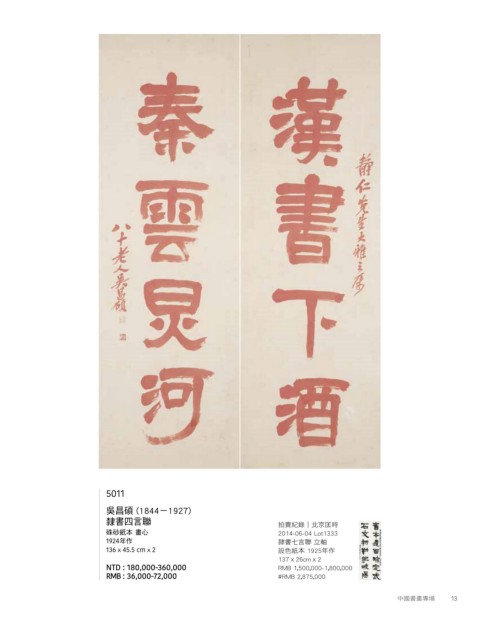 漢書下酒
靜仁先生大雅之屬
秦雲炅河
八十老人吳昌碩
5011
吳昌碩（1844－1927）
隸書四言聯
硃砂紙本 畫心
1924年作
136 x 45.5 cm x 2
NTD : 180,000-360,000
RMB : 36,000-72,000
拍賣紀錄｜北京匡時
2014-06-04 Lot1333
隸書七言聯 立軸
設色紙本 1925年作
137 x 26cm x 2
RMB 1,500,000-1,800,000
#RMB 2,875,000
中國書畫專場 13